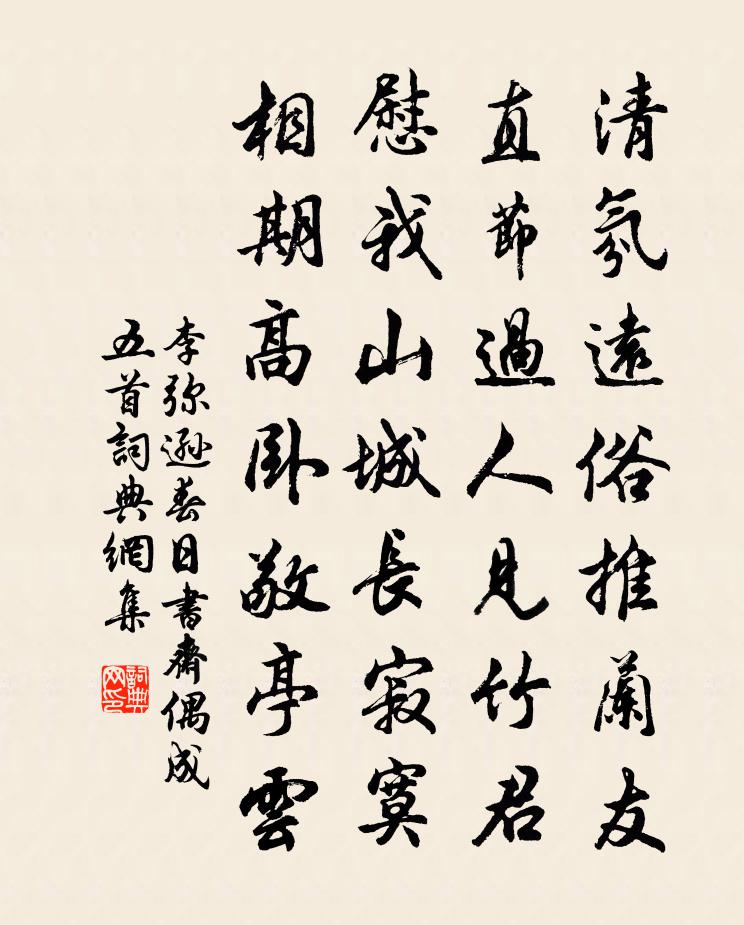 清氛遠俗推蘭友
直節過人見竹君
慰我山城長寂寞
相期高卧敬亭雲
李弥遜春日書齋偶成
五首詞典網集
詞典
网印